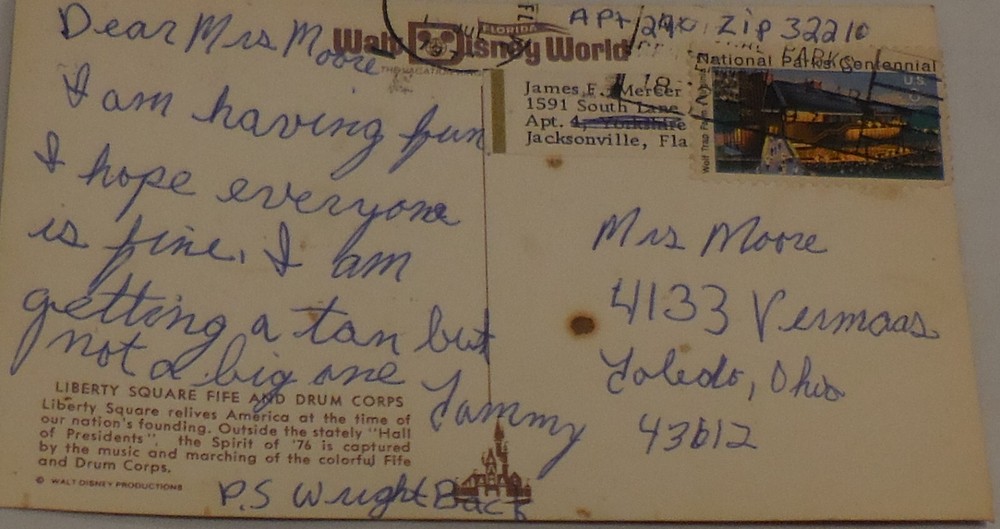 Dear Mrs Moore
I am having fun
I hope everyone
is fine. I am
getting a tan but
not a big one
Tammy
P.S Wright Back
LIBERTY SQUARE FIFE AND DRUM CORPS
Liberty Square relives America at the time of
our nation's founding. Outside the stately "Hall
of Presidents", the Spirit of '76 is captured
by the music and marching of the colorful Fife
and Drum Corps.
© WALT DISNEY PRODUCTIONS
FLORIDA
Walt Disney World
Apt Zip 32210
James F. Mercer
1591 South Lane
Apt. 4, Yorkshire
Jacksonville, Fla
National Parks Centennial
Wolf Trap Farm
US
Mrs Moore
4133 Vermaas
Toledo, Ohio
43612